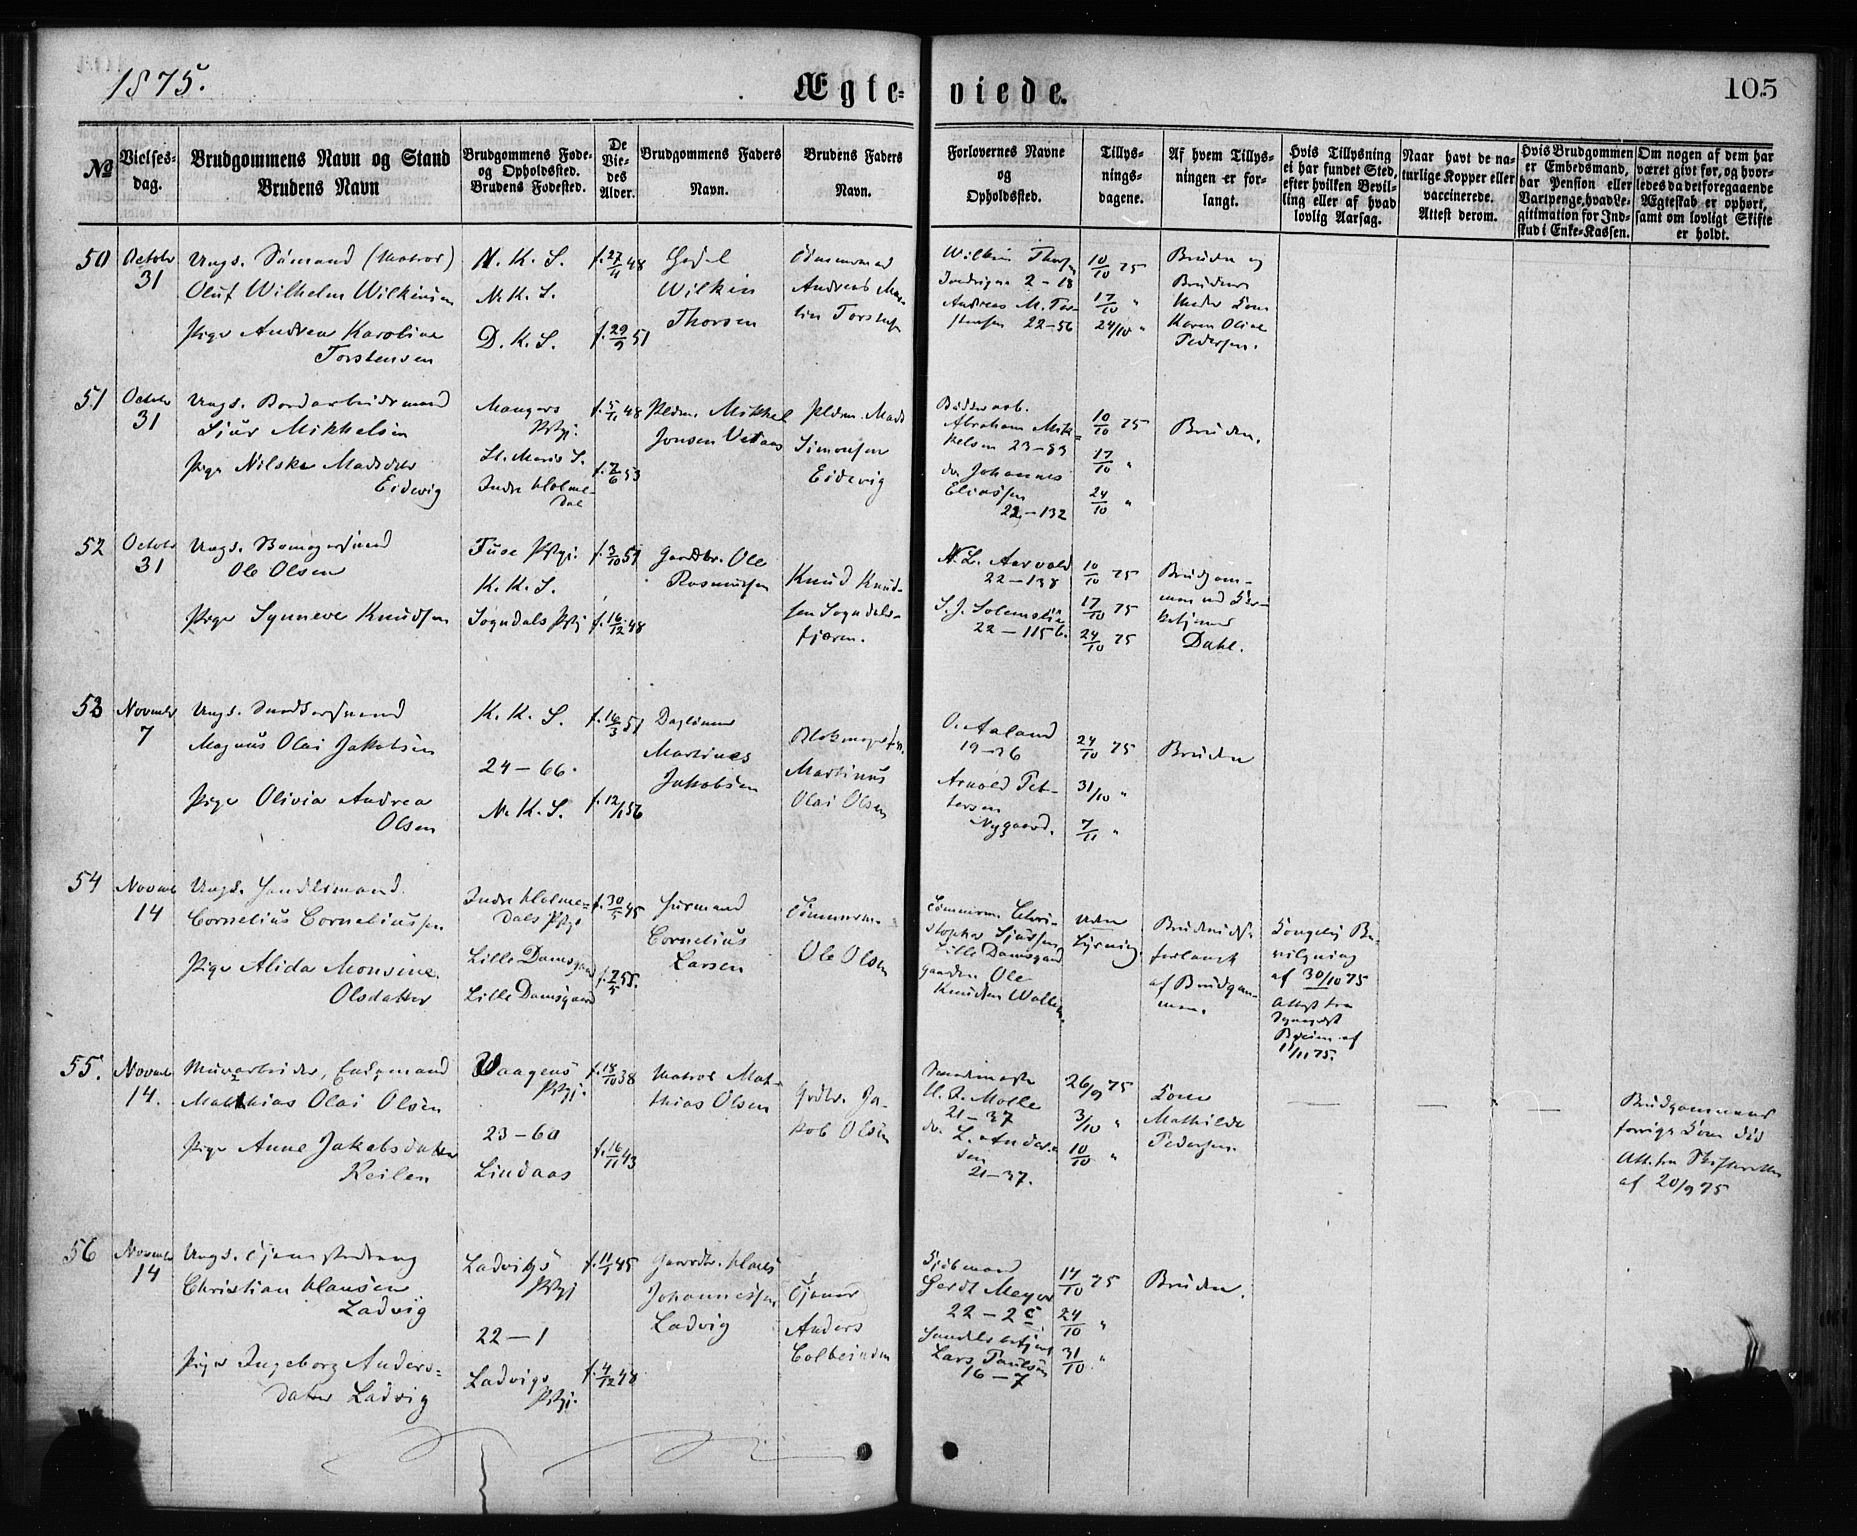 1875.
Ægte-
viede.
105
№
Vielses-
dag.
Brudgommens Navn og Stand
Brudens Navn
Brudgommens Føde-
og Opholdssted.
Brudens Fødested.
De
Vie-
des
Alder.
Brudgommens Faders
Navn.
Brudens Faders
Navn.
Forlovernes Navne
og
Opholdssted.
Tillys-
nings-
dagene.
Af hvem Tillys-
ningen er for-
langt.
Hvis Tillysning
ei har fundet Sted,
efter hvilken Bevil-
ling eller af hvad
lovlig Aarsag.
Naar havt de na-
turlige Kopper eller
vaccinerede.
Attest derom.
Hvis Brudgommen
er Embedsmand,
har Pension eller
Vartpenge, hvad Le-
gitimation for Ind-
skud i Enke-Kassen.
Om nogen af dem har
været givt før, og hvor-
ledes da det foregaaende
Ægteskab er ophørt,
samt om lovligt Skifte
er holdt.
50
Octobr
31
Ungk. Sömand (Matros)
Oluf Wilhelm Wilkinsen
Pige Andrea Karoline
Torstensen
N. K. S.
N. K. S.
D. K. S.
f. 27/11 48
f. 29/9 51
Wilkin
Thorsen
Andreas
Wilkin Thorsen
2-18
Andreas M. Tor-
stensen 22-56
10/10 75
17/10 "
24/10 "
Bruden og
Brudens
Moder
Karen Oline
Pedersen.
51
Octobr
31
Ungk. Bordarbeidsmand
Sjur Mikkelsen
Pige Nilske Madsdtr
Eidevig
Mangers
Pstgj.
St. Maria S.
Indre Holme-
dal
f. 5/11 48
f. 7/6 53
Pldsm. Mikkel
Jonsen Vetaas
Pldsm. Mads
Simonsen
Eidevig
Abraham Mik-
kelsen 23-83
do. Johannes
Eliassen
22-132
10/10 75
17/10 "
24/10 "
Bruden.
52
Octobr
31
Ungk.
Ole Olsen
Pige Synneve Knudsen
Fuse Pstgj.
K. K. S.
Sogndals Pstgj
f. 3/10 51
f. 16/12 48
Gaardbr. Ole
Rasmussen
Knud Knud-
sen Sogndals-
fjæren.
N. L. Aarvold
22-138
22-115 b.
10/10 75
17/10 75
24/10 75
Brudgom-
men ved
Dahl.
53
Novembr
7
Ungk.
Magnus Olai Jakobsen
Pige Olivia Andrea
Olsen
K. K. S.
24-66.
N. K. S.
f. 16/3 51
f. 12/1 56
Martines
Jakobsen
Martinus
Olai Olsen
O. Aaland
19-36
Arnold Pet-
tersen
Nygaard.
24/10 75
31/10 "
7/11 "
Bruden
54
Novembr
14
Ungk. Handelsmand
Cornelius Corneliussen
Pige Alida Monsine
Olsdatter
Indre Holme-
dals Pstgj
Lille Damsgaard
Lille Damsgaard
f. 30/5 45
f. 7/5 55.
Cornelius
Larsen
Tömmerm.
Ole Olsen
Tömmerm. Chri-
stopher Sjursen
Lille Damsgaard
Ole
Knudsen Wallem.
Uden
Lysning
forlangt
af Brudgom-
men.
Kongelig Be-
vilgning
af 30/10 75
Attest fra
af
11/11 75.
55.
Novembr
14.
Murarbeider, Enkemand
Matthias Olai Olsen
Pige Anne Jakobsdatter
Keilen
Waagens
Pstgj.
23-60
Lindaas
f. 18/10 38
f. 16/11 43
Matros Mat-
thias Olsen
Grdbr. Ja-
kob Olsen
Molle
21-37
do. L. Ander-
sen
21-37.
26/9 75
3/10 "
10/10 "
Kone
Mathilde
Pedersen.
Brudgommens
forrige Kone död
Att. fra Skifteretten
af 20/9 75
56
Novembr
14
Ungk. Tjenestedreng
Christian Hansen
Ladvig
Pige Ingeborg Anders-
datter Ladvig
Ladvigs
Pstgj
22-1
Ladvigs
Pstgj.
f. 11/1 45
f. 4/12 48
Gaardbr. Hans
Johannessen
Ladvig
Tjener
Anders
Colbeinsen
Gerdt Meyer
22-2 c
Lars Paulsen
16-7
17/10 75
24/10 "
31/10 "
Bruden.